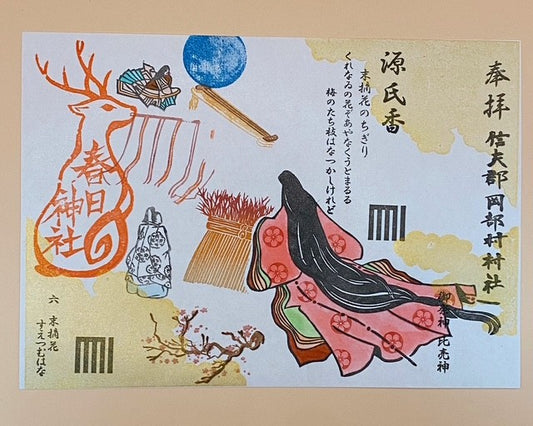 奉拝 信夫郡岡部村村社
源氏香
末摘花のちぎり
くれなゐの花ぞあやなくうとまるる
梅のたち枝はなつかしけれど
比売神
春日
神社
六 末摘花
すえつむはな